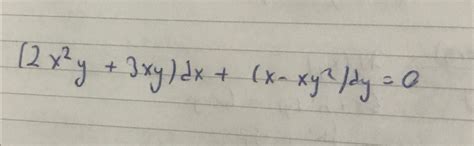 (2x²y + 3xy)dx + (x - xy²)dy = 0